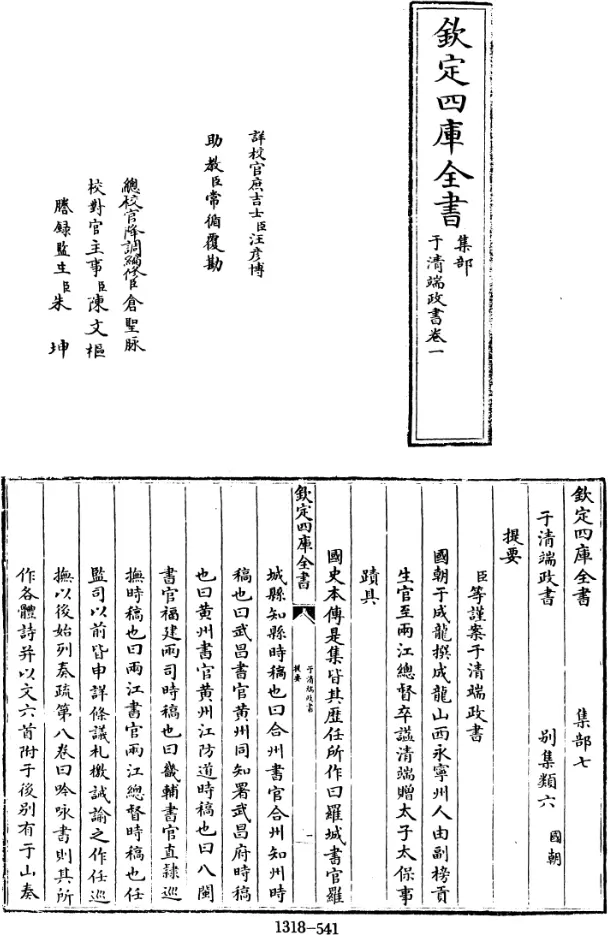 欽定四庫全書
集部
于清端政書卷一
詳校官庶吉士臣汪彥博
助教臣常循覆勘
總校官降調編修臣倉聖脉
校對官主事臣陳文樞
謄錄監生臣朱坤
欽定四庫全書 集部七
于清端政書 别集類六國朝
提要
臣等謹案于清端政書
國朝于成龍撰成龍山西永寧州人由副榜貢
生官至兩江總督卒諡清端贈太子太保事
蹟具
國史本傳是集皆其歷任所作曰羅城書官羅
欽定四庫全書
于清端政書
提要
一
城縣知縣時稿也曰合州書官合州知州時
稿也曰武昌書官黄州同知署武昌府時稿
也曰黄州書官黄州江防道時稿也曰八閩
書官福建兩司時稿也曰畿輔書官直隸巡
撫時稿也曰兩江書官兩江總督時稿也任
監司以前皆申詳條議札檄誡諭之作任巡
撫以後始列奏疏第八卷曰吟咏書則其所
作各體詩并以文六首附于後别有于山奏
1318-541